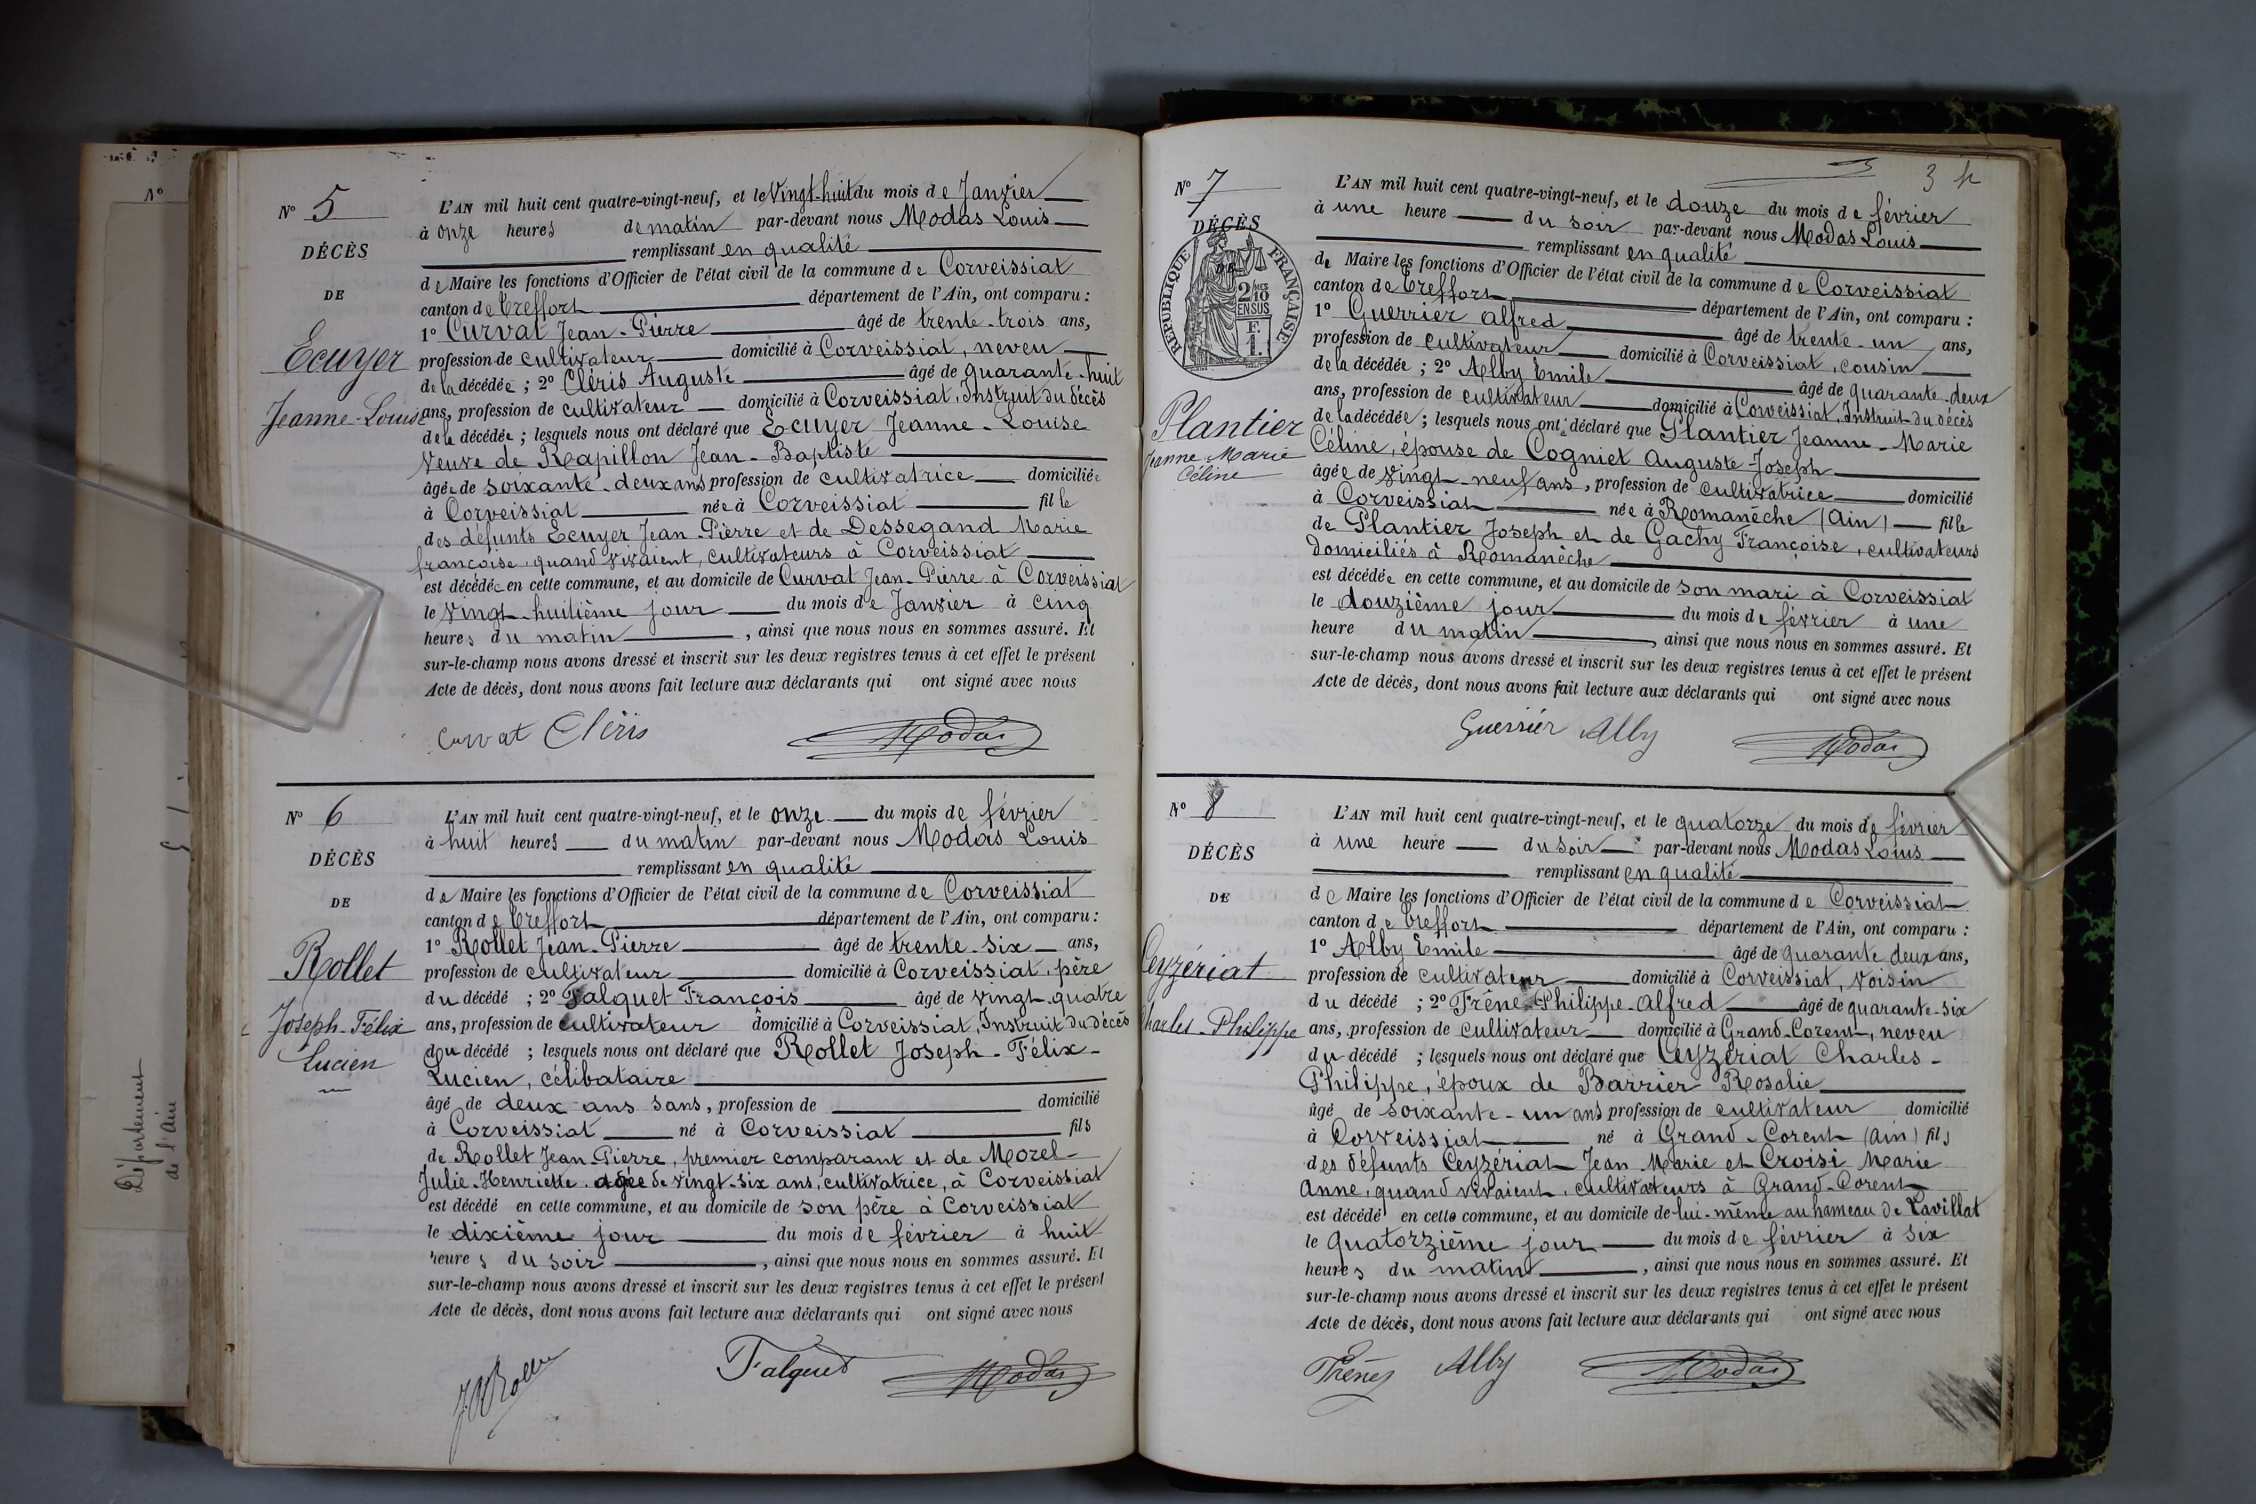 N°
Département
de l'ain
N° 5
DÉCÈS
DE
Ecuyer
Jeanne-Louise
L'AN mil huit cent quatre-vingt-neuf, et le Vingt-huit du mois de Janvier
à onze heures de matin par-devant nous Modas Louis
remplissant en qualité
de Maire les fonctions d'Officier de l'état civil de la commune de Corveissiat
canton de Treffort département de l'Ain, ont comparu :
1° Curvat Jean-Pierre âgé de trente-trois ans,
profession de cultivateur domicilié à Corveissiat, neveu
de la décédée ; 2° Cléris Auguste âgé de quarante-huit
ans, profession de cultivateur domicilié à Corveissiat, Instruit du décès
de la décédée ; lesquels nous ont déclaré que Ecuyer Jeanne-Louise
Veuve de Rapillon Jean-Baptiste
âgée de soixante-deux ans profession de cultivatrice domiciliée
à Corveissiat née à Corveissiat fille
des défunts Ecuyer Jean-Pierre et de Dessegand Marie
françoise, quand vivaient, cultivateurs à Corveissiat
est décédée en cette commune, et au domicile de Curvat Jean-Pierre à Corveissiat
le vingt-huitième jour du mois de Janvier à cinq
heures du matin, ainsi que nous nous en sommes assuré. Et
sur-le-champ nous avons dressé et inscrit sur les deux registres tenus à cet effet le présent
Acte de décès, dont nous avons fait lecture aux déclarants qui ont signé avec nous
Curvat Cléris Modas
N° 6
DÉCÈS
DE
Rollet
Joseph-Félix
Lucien
L'AN mil huit cent quatre-vingt-neuf, et le onze du mois de février
à huit heures du matin par-devant nous Modas Louis
remplissant en qualité
de Maire les fonctions d'Officier de l'état civil de la commune de Corveissiat
canton de Treffort département de l'Ain, ont comparu :
1° Rollet Jean-Pierre âgé de trente-six ans,
profession de cultivateur domicilié à Corveissiat, père
du décédé ; 2° Falquet François âgé de vingt-quatre
ans, profession de cultivateur domicilié à Corveissiat, Instruit du décès
du décédé ; lesquels nous ont déclaré que Rollet Joseph-Félix-
Lucien, célibataire
âgé de deux ans sans, profession de domicilié
à Corveissiat né à Corveissiat fils
de Rollet Jean-Pierre, premier comparant et de Morel-
Julie-Henriette agée de vingt-six ans, cultivatrice, à Corveissiat
est décédé en cette commune, et au domicile de son père à Corveissiat
le dixième jour du mois de février à huit
heures du soir, ainsi que nous nous en sommes assuré. Et
sur-le-champ nous avons dressé et inscrit sur les deux registres tenus à cet effet le présent
Acte de décès, dont nous avons fait lecture aux déclarants qui ont signé avec nous
Falquet Modas
3
N° 7
DÉCÈS
DE
RÉPUBLIQUE FRANÇAISE
2/10 EN SUS
Plantier
Jeanne Marie
Céline
L'AN mil huit cent quatre-vingt-neuf, et le douze du mois de février
à une heure du soir par-devant nous Modas Louis
remplissant en qualité
de Maire les fonctions d'Officier de l'état civil de la commune de Corveissiat
canton de Treffort département de l'Ain, ont comparu :
1° Guerrier Alfred âgé de trente-un ans,
profession de cultivateur domicilié à Corveissiat, cousin
de la décédée ; 2° Alby Emile âgé de quarante-deux
ans, profession de cultivateur domicilié à Corveissiat, Instruit du décès
de la décédée ; lesquels nous ont déclaré que Plantier Jeanne-Marie
Céline, épouse de Cogniet Auguste-Joseph
âgée de vingt-neuf ans, profession de cultivatrice domicilié
à Corveissiat née à Romanèche (Ain) fille
de Plantier Joseph et de Gachy Françoise, cultivateurs
domiciliés à Romanèche
est décédée en cette commune, et au domicile de son mari à Corveissiat
le douzième jour du mois de février à une
heure du matin, ainsi que nous nous en sommes assuré. Et
sur-le-champ nous avons dressé et inscrit sur les deux registres tenus à cet effet le présent
Acte de décès, dont nous avons fait lecture aux déclarants qui ont signé avec nous
Guerrier Alby Modas
N° 8
DÉCÈS
DE
Ceyzériat
Charles-Philippe
L'AN mil huit cent quatre-vingt-neuf, et le quatorze du mois de février
à une heure du soir par-devant nous Modas Louis
remplissant en qualité
de Maire les fonctions d'Officier de l'état civil de la commune de Corveissiat
canton de Treffort département de l'Ain, ont comparu :
1° Alby Emile âgé de quarante deux ans,
profession de cultivateur domicilié à Corveissiat, voisin
du décédé ; 2° Frêne Philippe-Alfred âgé de quarante-six
ans, profession de cultivateur domicilié à Grand-Corent, neveu
du décédé ; lesquels nous ont déclaré que Ceyzériat Charles-
Philippe, époux de Barrier Rosalie
âgé de soixante-un ans profession de cultivateur domicilié
à Corveissiat né à Grand-Corent (Ain) fils
des défunts Ceyzériat Jean Marie et Croisi Marie
Anne, quand vivaient, cultivateurs à Grand-Corent
est décédé en cette commune, et au domicile de lui-même au hameau de Lavillat
le Quatorzième jour du mois de février à six
heures du matin, ainsi que nous nous en sommes assuré. Et
sur-le-champ nous avons dressé et inscrit sur les deux registres tenus à cet effet le présent
Acte de décès, dont nous avons fait lecture aux déclarants qui ont signé avec nous
Alby Modas